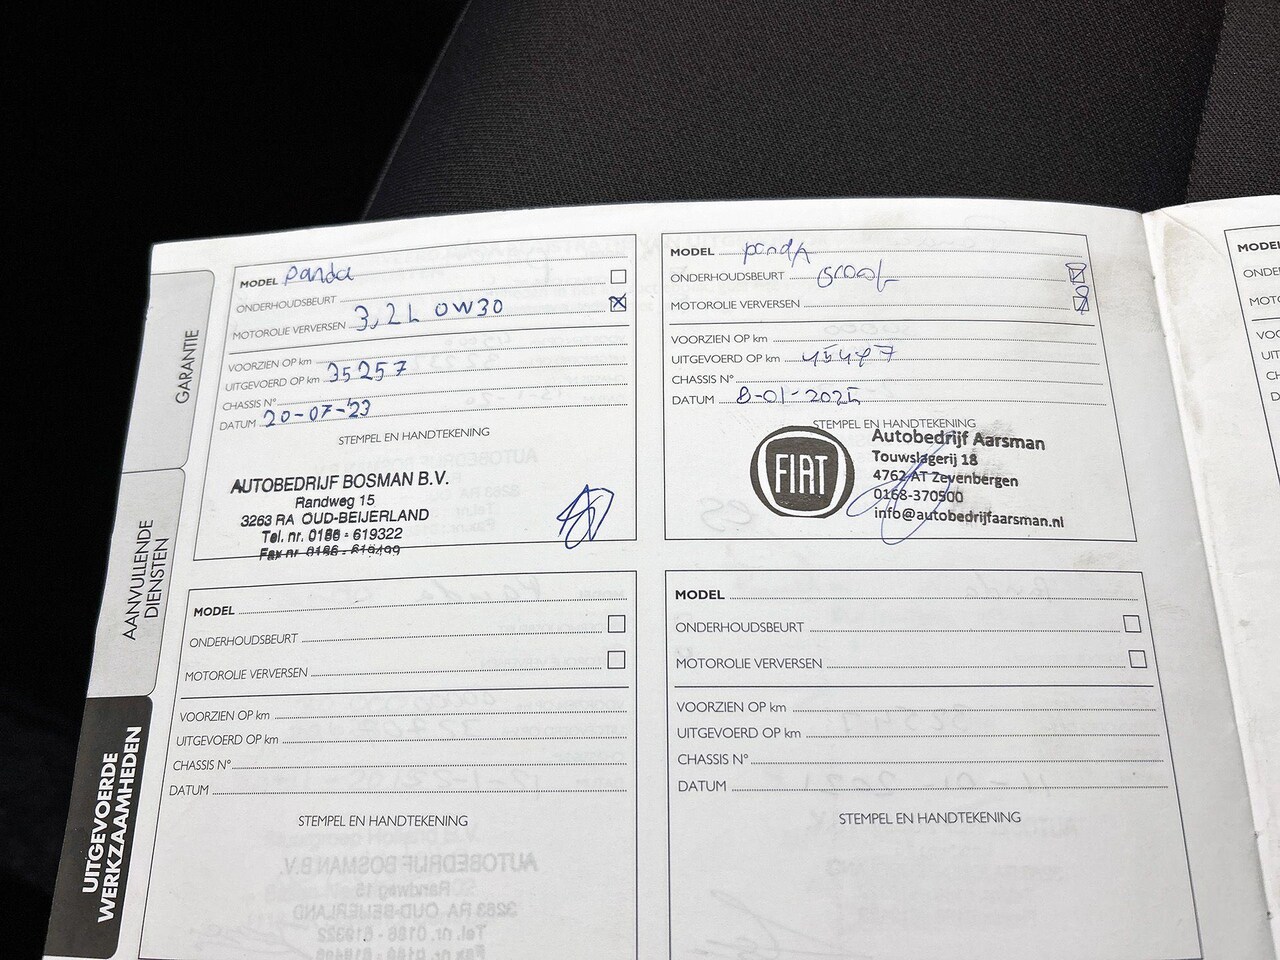 GARANTIE
AANVULLENDE
DIENSTEN
UITGEVOERDE
WERKZAAMHEDEN
MODEL panda
ONDERHOUDSBEURT
MOTOROLIE VERVERSEN 3,2L 0W30
VOORZIEN OP km
UITGEVOERD OP km 35257
CHASSIS N°
DATUM 20-07-'23
STEMPEL EN HANDTEKENING
AUTOBEDRIJF BOSMAN B.V.
Randweg 15
3263 RA OUD-BEIJERLAND
Tel. nr. 0186 - 619322
Fax nr 0186 - 619499
MODEL pandA
ONDERHOUDSBEURT groot
MOTOROLIE VERVERSEN
VOORZIEN OP km
UITGEVOERD OP km
CHASSIS N°
DATUM
STEMPEL EN HANDTEKENING
FIAT
Autobedrijf Aarsman
Touwslagerij 18
4762 AT Zevenbergen
0168-370500
info@autobedrijfaarsman.nl
MODEL
ONDERHOUDSBEURT
MOTOROLIE VERVERSEN
VOORZIEN OP km
UITGEVOERD OP km
CHASSIS N°
DATUM
STEMPEL EN HANDTEKENING
MODEL
ONDERHOUDSBEURT
MOTOROLIE VERVERSEN
VOORZIEN OP km
UITGEVOERD OP km
CHASSIS N°
DATUM
STEMPEL EN HANDTEKENING